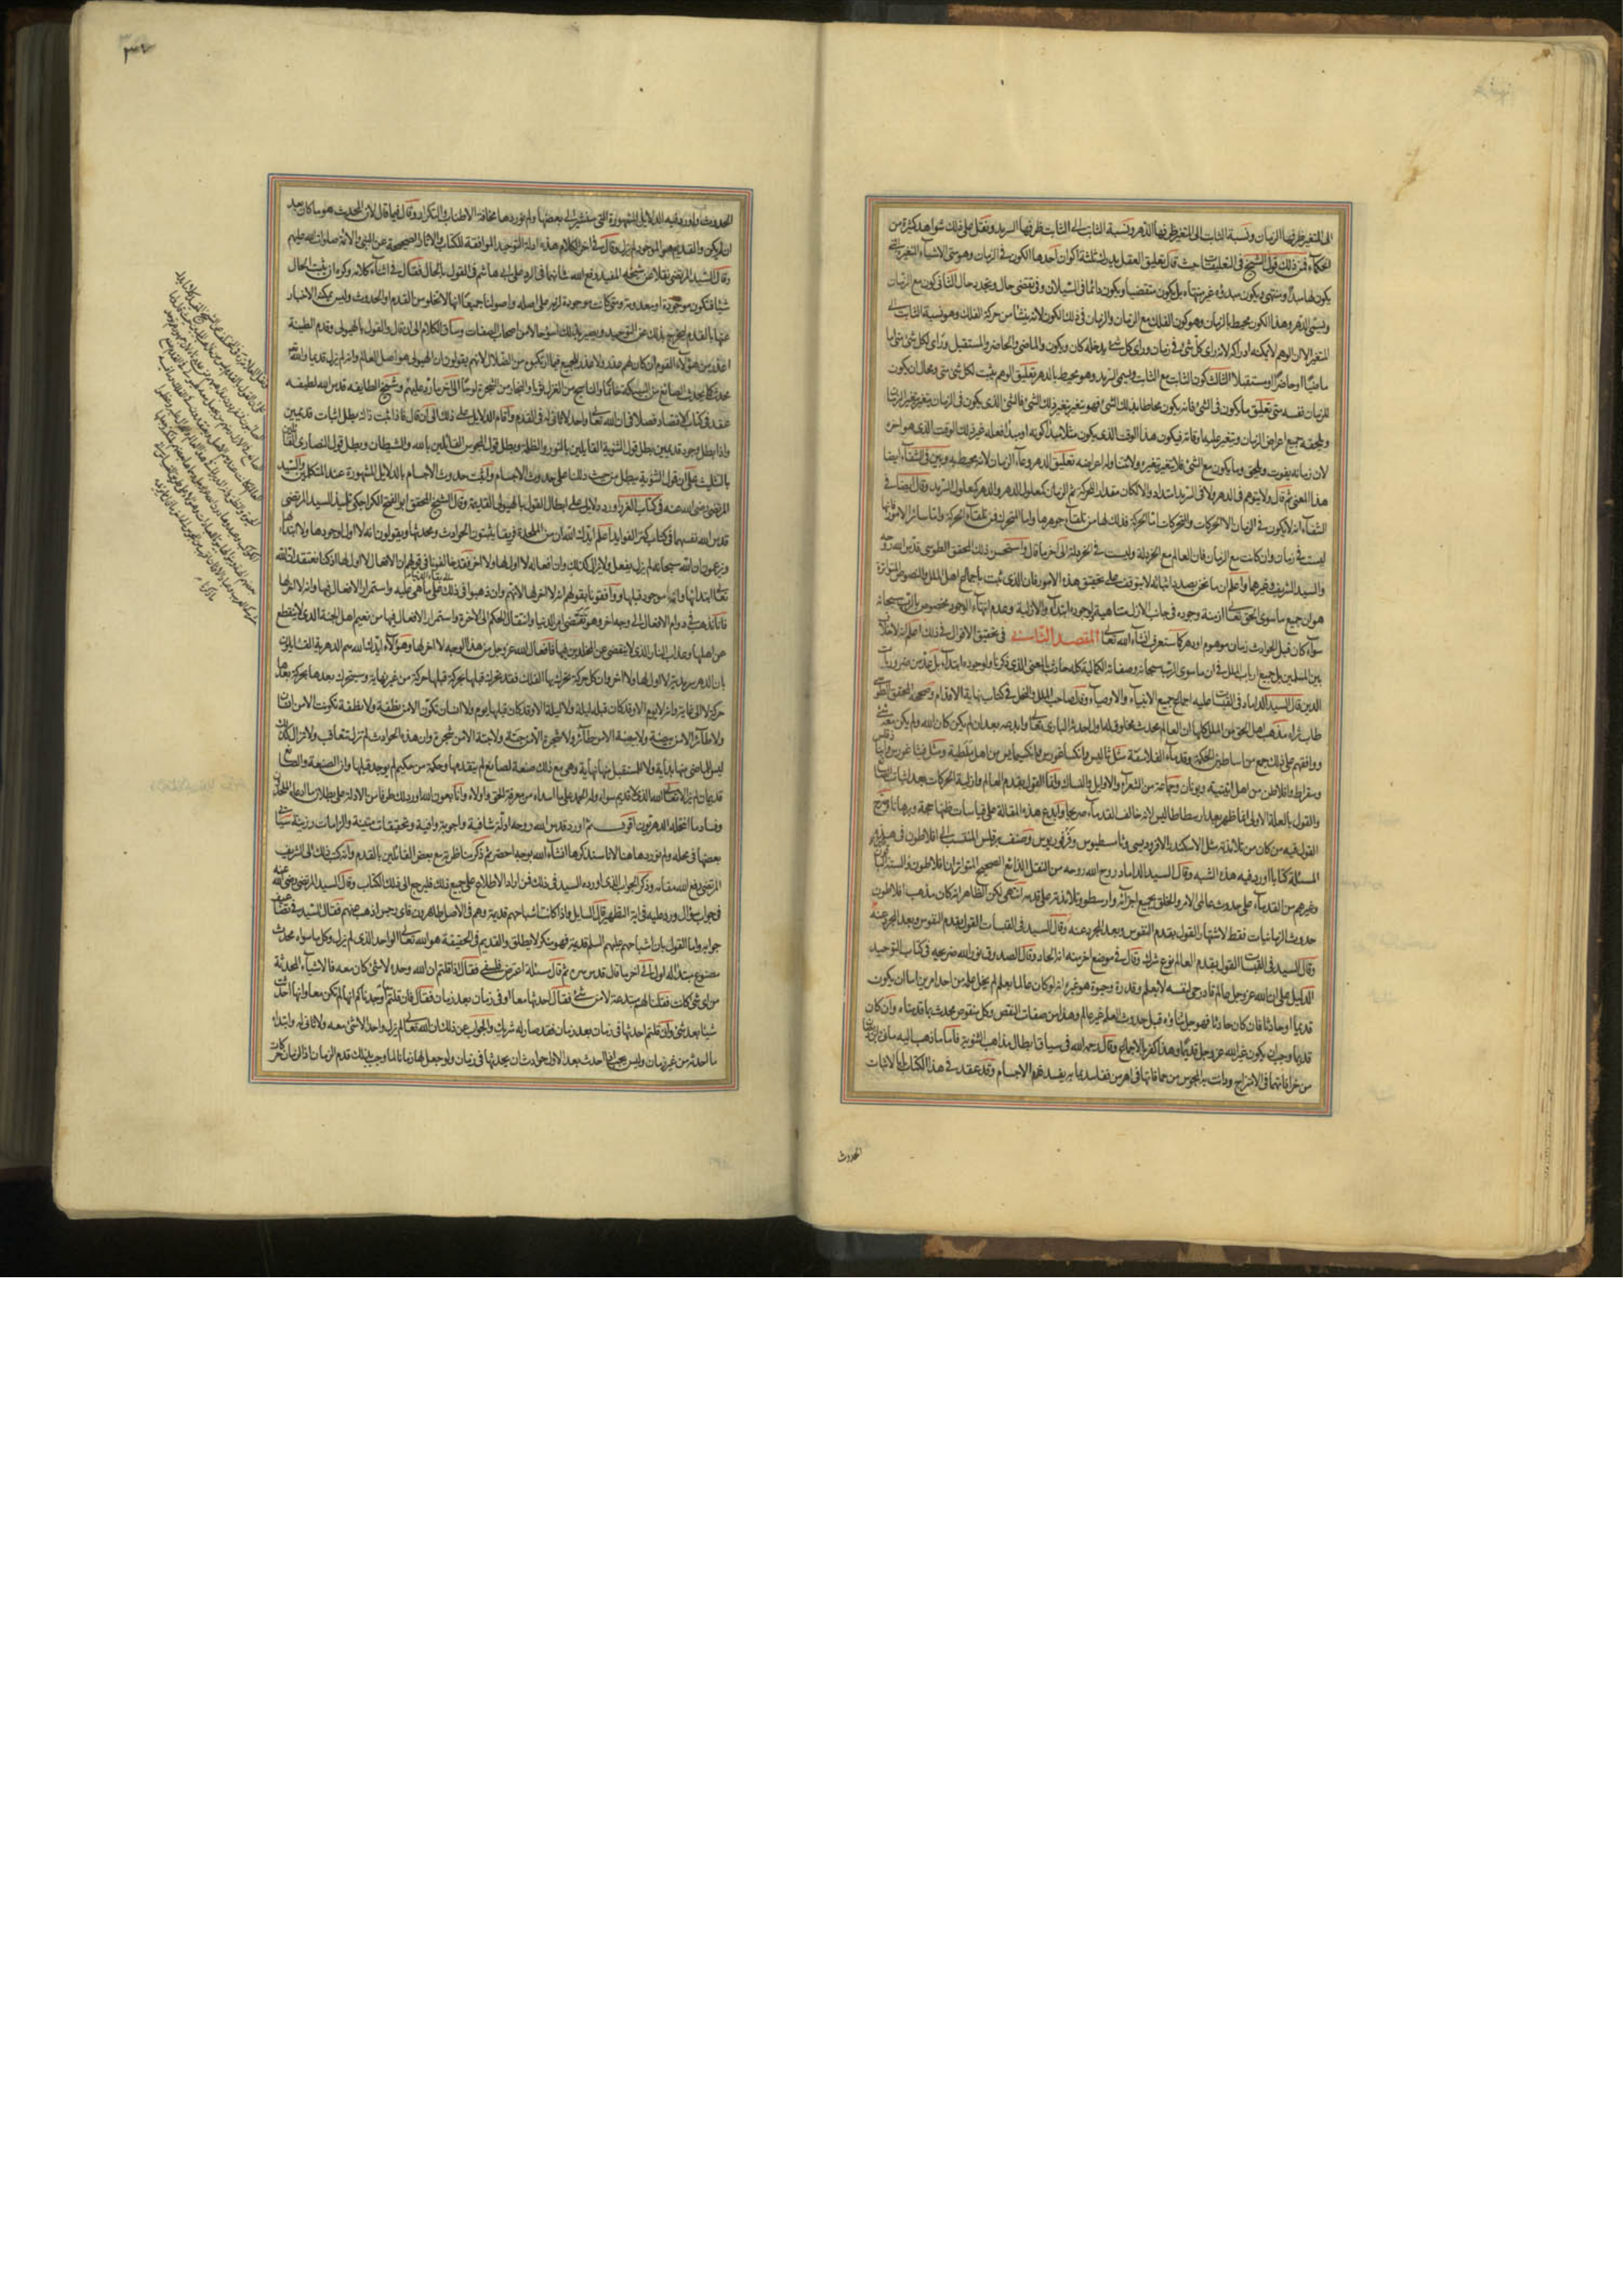 الى المتغير ظرفها الزمان ونسبة الثابت الى المتغير ظرفها الدهر ونسبة الثابت الى الثابت ظرفها السرمد ونقل على ذلك شواهد كثيرة من
الحكماء فمن ذلك قول الشيخ في التعليقات حيث قال تعليق العقل يدرك ثلثة اكوان احدها الكون في الزمان وهو متى الاشياء المتغيرة التي
يكون لها مبدأ ومنتهى ويكون مبدؤه غير منتهاه بل يكون متقضيا ويكون دائما في السيلان وفي تقضى حال وتجدد حال الثاني كون مع الزمان
ويسمى الدهر وهذا الكون محيط بالزمان وهو كون الفلك مع الزمان والزمان في ذلك الكون لانه ينشأ من حركة الفلك وهو نسبة الثابت الى
المتغير الا ان الوهم لا يمكنه ادراكه لانه رأى كل شئ في زمان ورأى كل شئ يدخله كان ويكون والماضي والحاضر والمستقبل ورأى لكل شئ متى اما
ماضيا او حاضرا او مستقبلا الثالث كون الثابت مع الثابت ويسمى السرمد وهو محيط بالدهر تعليق الوهم يثبت لكل شئ متى ومحال ان يكون
للزمان نفسه متى تعليق ما يكون في الشئ فانه يكون محاطا بذلك الشئ فهو يتغير بتغير ذلك الشئ فالشئ الذي يكون في الزمان يتغير بتغير الزمان
ويلحقه جميع اعراض الزمان ويتغير عليه اوقاته فيكون هذا الوقت الذي يكون مثلا مبدأ كونه او مبدأ فعله غير ذلك الوقت الذي هو آخره
لان زمانه يفوت ويلحق وما يكون مع الشئ فلا يتغير بتغيره ولا تتناوله اعراضه تعليق الدهر وعاء الزمان لانه محيط به وبين في الشفاء ايضا
هذا المعنى ثم قال ولا يتوهم في الدهر ولا في السرمد امتداد والا لكان مقدارا للحركة ثم الزمان كمعلول للدهر والدهر كمعلول للسرمد وقال ايضا في
الشفاء انه لا يكون في الزمان الا الحركات والمتحركات اما الحركة فذلك لها من تلقاء جوهرها واما المتحرك فمن تلقاء الحركة واما سائر الامور فانها
ليست في زمان وان كانت مع الزمان فان العالم مع الخردلة وليست في الخردلة الى آخر ما قال واستحسن ذلك المحقق الطوسي قدس الله روحه
والسيد الشريف وغيرهما واعلم ان ما نحن بصدد اثباته لا يتوقف على تحقيق هذه الامور فان الذي ثبت باجماع اهل الملل والنصوص المتواترة
هو ان جميع ما سوى الحق تعالى ازمنة وجوده في جانب الازل متناهية ولوجوده ابتداء والازلية وعدم انتهاء الوجود مخصوص بالرب سبحانه
سواء كان قبل الحوادث زمان موهوم او دهر كما ستعرف انشاء الله تعالى المقصد الثاني في تحقيق الاقوال في ذلك اعلم انه لا خلاف
بين المسلمين بل جميع ارباب الملل في ان ما سوى الرب سبحانه وصفاته الكمالية كله حادث بالمعنى الذي ذكرنا ولوجوده ابتداء بل عد من ضروريات
الدين قال السيد الداماد في القبسات عليه اجماع جميع الانبياء والاوصياء وقال صاحب الملل والنحل في كتاب نهاية الاقدام وصححه المحقق الطوسي
طاب ثراه مذهب اهل الحق من الملل كلها ان العالم محدث مخلوق له اول احدثه الباري تعالى وابدعه بعد ان لم يكن كان الله ولم يكن معه شئ
ووافقهم على ذلك جمع من اساطين الحكمة وقدماء الفلاسفة مثل ثاليس وانكساغورس وانكسيمايس من اهل ملطية ومثل فيثاغورس وانباذقلس
وسقراط وافلاطن من اهل اثينية ويونان وجماعة من الشعراء والاوايل والنساك وانما القول بقدم العالم وازلية الحركات بعد اثبات الصانع
والقول بالعلة الاولى انما ظهر بعد ارسطاطاليس لانه خالف القدماء صريحا وابدع هذه المقالة على قياسات ظنها حجة وبرهانا وصرح
القول فيه من كان من تلامذته مثل الاسكندر الافروديسي وثامسطيوس وفرفوريوس وصنف برقلس المنتسب الى افلاطون في هذه
المسئلة كتابا اورد فيه هذه الشبه وقال السيد الداماد روح الله روحه من النقل الذائع الصحيح المتواتر ان افلاطون والستة الباقين
وغيرهم من القدماء على حدوث عالمي الامر والخلق بجميع اجزائه وارسطو وتلامذته على قدمه انتهى لكن الظاهر انه كان مذهب افلاطون
حدوث الزمانيات فقط لاشتهار القول بقدم النفوس وبعد المجرد عنه وقال السيد في القبسات القول بقدم النفوس وبعد المجرد عنه
وقال السيد في القبسات القول بقدم العالم نوع شرك وقال في موضع آخر منه انه الحاد وقال الصدوق نور الله ضريحه في كتاب التوحيد
الدليل على ان الله عز وجل عالم قادر حي لنفسه لا بعلم وقدرة وحيوة هو غيره انه لو كان عالما بعلم لم يخل علمه من احد امرين اما ان يكون
قديما او حادثا فان كان حادثا فهو جل ثناؤه قبل حدوث العلم غير عالم وهذا من صفات النقص وكل منقوص محدث بما قدمناه وان كان
قديما وجب ان يكون غير الله عز وجل قديما وهذا كفر بالاجماع وقال رحمه الله في سياق ابطال مذاهب الثنوية فاما ما ذهب اليه ماني وابن ديصان
من خرافاتهما في الامتزاج ودانت به المجوس من حماقاتها في اهرمن ففاسد بما به يفسد قدم الاجسام وقد عقد في هذا الكتاب بابا لاثبات
الحدوث
الحدوث واورد فيه الدلايل المشهورة التي سنشير الى بعضها ولم نوردها مخافة الاطناب والتكرار وقال فيما قال لان المحدث هو ما كان بعد
ان لم يكن والقديم هو الموجود لم يزل وقال في آخر الكلام هذه ادلة التوحيد الموافقة للكتاب والاثار الصحيحة عن النبي والائمة صلوات الله عليهم
وقال السيد المرتضى نقلا عن شيخه المفيد رفع الله شأنهما في الرد على ابي هاشم في القول بالحال فقال في اثناء كلامه وكره ان يثبت الحال
شيئا فتكون موجودة او معدومة ومتى كانت موجودة لزمه على اصله واصولنا جميعا انها لا تخلو من القدم او الحدوث وليس يمكنه الاخبار
عنها بالقدم ليخرج بذلك عن التوحيد ويصير بذلك اسوء حالا من اصحاب الصفات وساق الكلام الى ان قال والقول بالهيولى وقدم الطينة
اعذر من هؤلاء القوم ان كان لهم عذر ولا عذر للجميع فيما ارتكبوه من الضلال لانهم يقولون ان الهيولى هو اصل العالم وانه لم يزل قديما والله تعالى
محدث كما يحدث الصائغ من السبيكة خاتما والناسج من الغزل ثوبا والنجار من الشجرة لوحا الى آخر ما رد عليهم وشيخ الطايفة قدس الله لطيفه
عقد في كتاب الاقتصاد فصلا في ان الله تعالى واحد لا ثاني له في القدم واقام الدلايل على ذلك الى ان قال فاذا ثبت ذلك بطل اثبات قديمين
واذا بطل وجود قديمين بطل قول الثنوية القايلين بالنور والظلمة وبطل قول المجوس القائلين بالله والشيطان وبطل قول النصارى القائلين
بالتثليث على ان قول الثنوية يبطل من حيث دللنا على حدوث الاجسام واثبت حدوث الاجسام بالدلايل المشهورة عند المتكلمين والسيد
المرتضى رضي الله عنه في كتاب الغرر اورد دلايل على ابطال القول بالهيولى القديمة وقال الشيخ المحقق ابو الفتح الكراجكي تلميذ السيد المرتضى
قدس الله نفسهما في كتاب كنز الفوايد اعلم ايدك الله ان من الملحدة فريقا يثبتون الحوادث ومحدثها ويقولون انه لا اول لوجودها ولا ابتداء لها
ويزعمون ان الله سبحانه لم يزل يفعل ولا يزال كذلك وان افعاله لا اول لها ولا آخر فقد خالفونا في قولهم ان الافعال لا اول لها اذ كنا نعتقد ان الله
تعالى ابتدأها وانه موجود قبلها ووافقونا بقولهم انه لا آخر لها لانهم وان ذهبوا في ذلك الى بقاء الدنيا على ما هي عليه واستمرار الافعال فيها وانه لا آخر لها
فانا نذهب في دوام الافعال الى وجه آخر وهو تقضي امر الدنيا وانتقال الحكم الى الآخرة واستمرار الافعال فيها من نعيم اهل الجنة الذي لا ينقطع
عن اهلها وعذاب النار الذي لا ينقضي عن المخلدين فيها فافعال الله عز وجل من هذا الوجه لا آخر لها وهؤلاء ايدك الله هم الدهرية القائلون
بان الدهر سرمدية لا اول لها ولا آخر وان كل حركة تحرك بها الفلك فقد تحرك قبلها بحركة قبلها حركة من غير نهاية وسيتحرك بعدها بحركة بعدها
حركة لا الى غاية وانه لا يوم الا وقد كان قبله ليلة ولا ليلة الا وقد كان قبلها يوم ولا انسان تكون الا من نطفة ولا نطفة تكونت الا من انسان
ولا طائر الا من بيضة ولا بيضة الا من طائر ولا شجرة الا من حبة ولا حبة الا من شجرة وان هذه الحوادث لم تزل تتعاقب ولا تزال كذلك
ليس للماضي منها بداية ولا للمستقبل منها نهاية وهي مع ذلك صنعة لصانع لم يتقدمها وحكمة من حكيم لم يوجد قبلها وان الصنعة والصانع
قديمان لم يزالا تعالى الله الذي لا قديم سواه وله الحمد على ما اسداه من معرفة الحق واولاه وانا بعون الله اورد لك طرفا من الادلة على بطلان ما ادعاه الملحدون
وفساد ما انتحله الدهريون اقول ثم اورد قدس الله روحه ادلة شافية واجوبة وافية وتحقيقات متينة والزامات رزينة سيأتي
بعضها في محله ولم نوردها هنا لانا سنذكرها انشاء الله بوجه اخصر ثم ذكر مناظرته مع بعض القائلين بالقدم وانه كتب ذلك الى الشريف
المرتضى رفع الله مقامه وذكر الجواب الذي اورده السيد في ذلك فمن اراد الاطلاع على جميع ذلك فليرجع الى ذلك الكتاب وقال السيد المرتضى رضي الله عنه
في جواب سؤال ورد عليه في آية التطهير قال السايل واذا كانت اشباحهم قديمة وهم في الاصل طاهرون فاي رجس اذهب عنهم فقال السيد في
جوابه واما القول بان اشباحهم عليهم السلم قديمة فهو منكر لا يطلق والقديم في الحقيقة هو الله تعالى الواحد الذي لم يزل وكل ما سواه محدث
مصنوع مبتدأ له اول الى آخر ما قال قدس سره ثم قال مسئلة اعترض فلسفي فقال اذا قلتم ان الله وحده لا شئ كان معه فالاشياء المحدثة
من اي شئ كانت فقلنا لهم مبتدعة لا من شئ فقال احدثها معا او في زمان بعد زمان فقال فان قلتم معا اوجدناكم انها لم تكن معا وانها احدثت
شيئا بعد شئ وان قلتم احدثها في زمان بعد زمان فقد صار له شريك والجواب عن ذلك ان الله تعالى لم يزل واحدا لا شئ معه ولا ثاني له وابتدأ
ما احدثه من غير زمان وليس يجب اذا احدث بعد الاول حوادث ان يحدثها في زمان ولو جعل لها زمانا لما وجب بذلك قدم الزمان اذ الزمان حركات